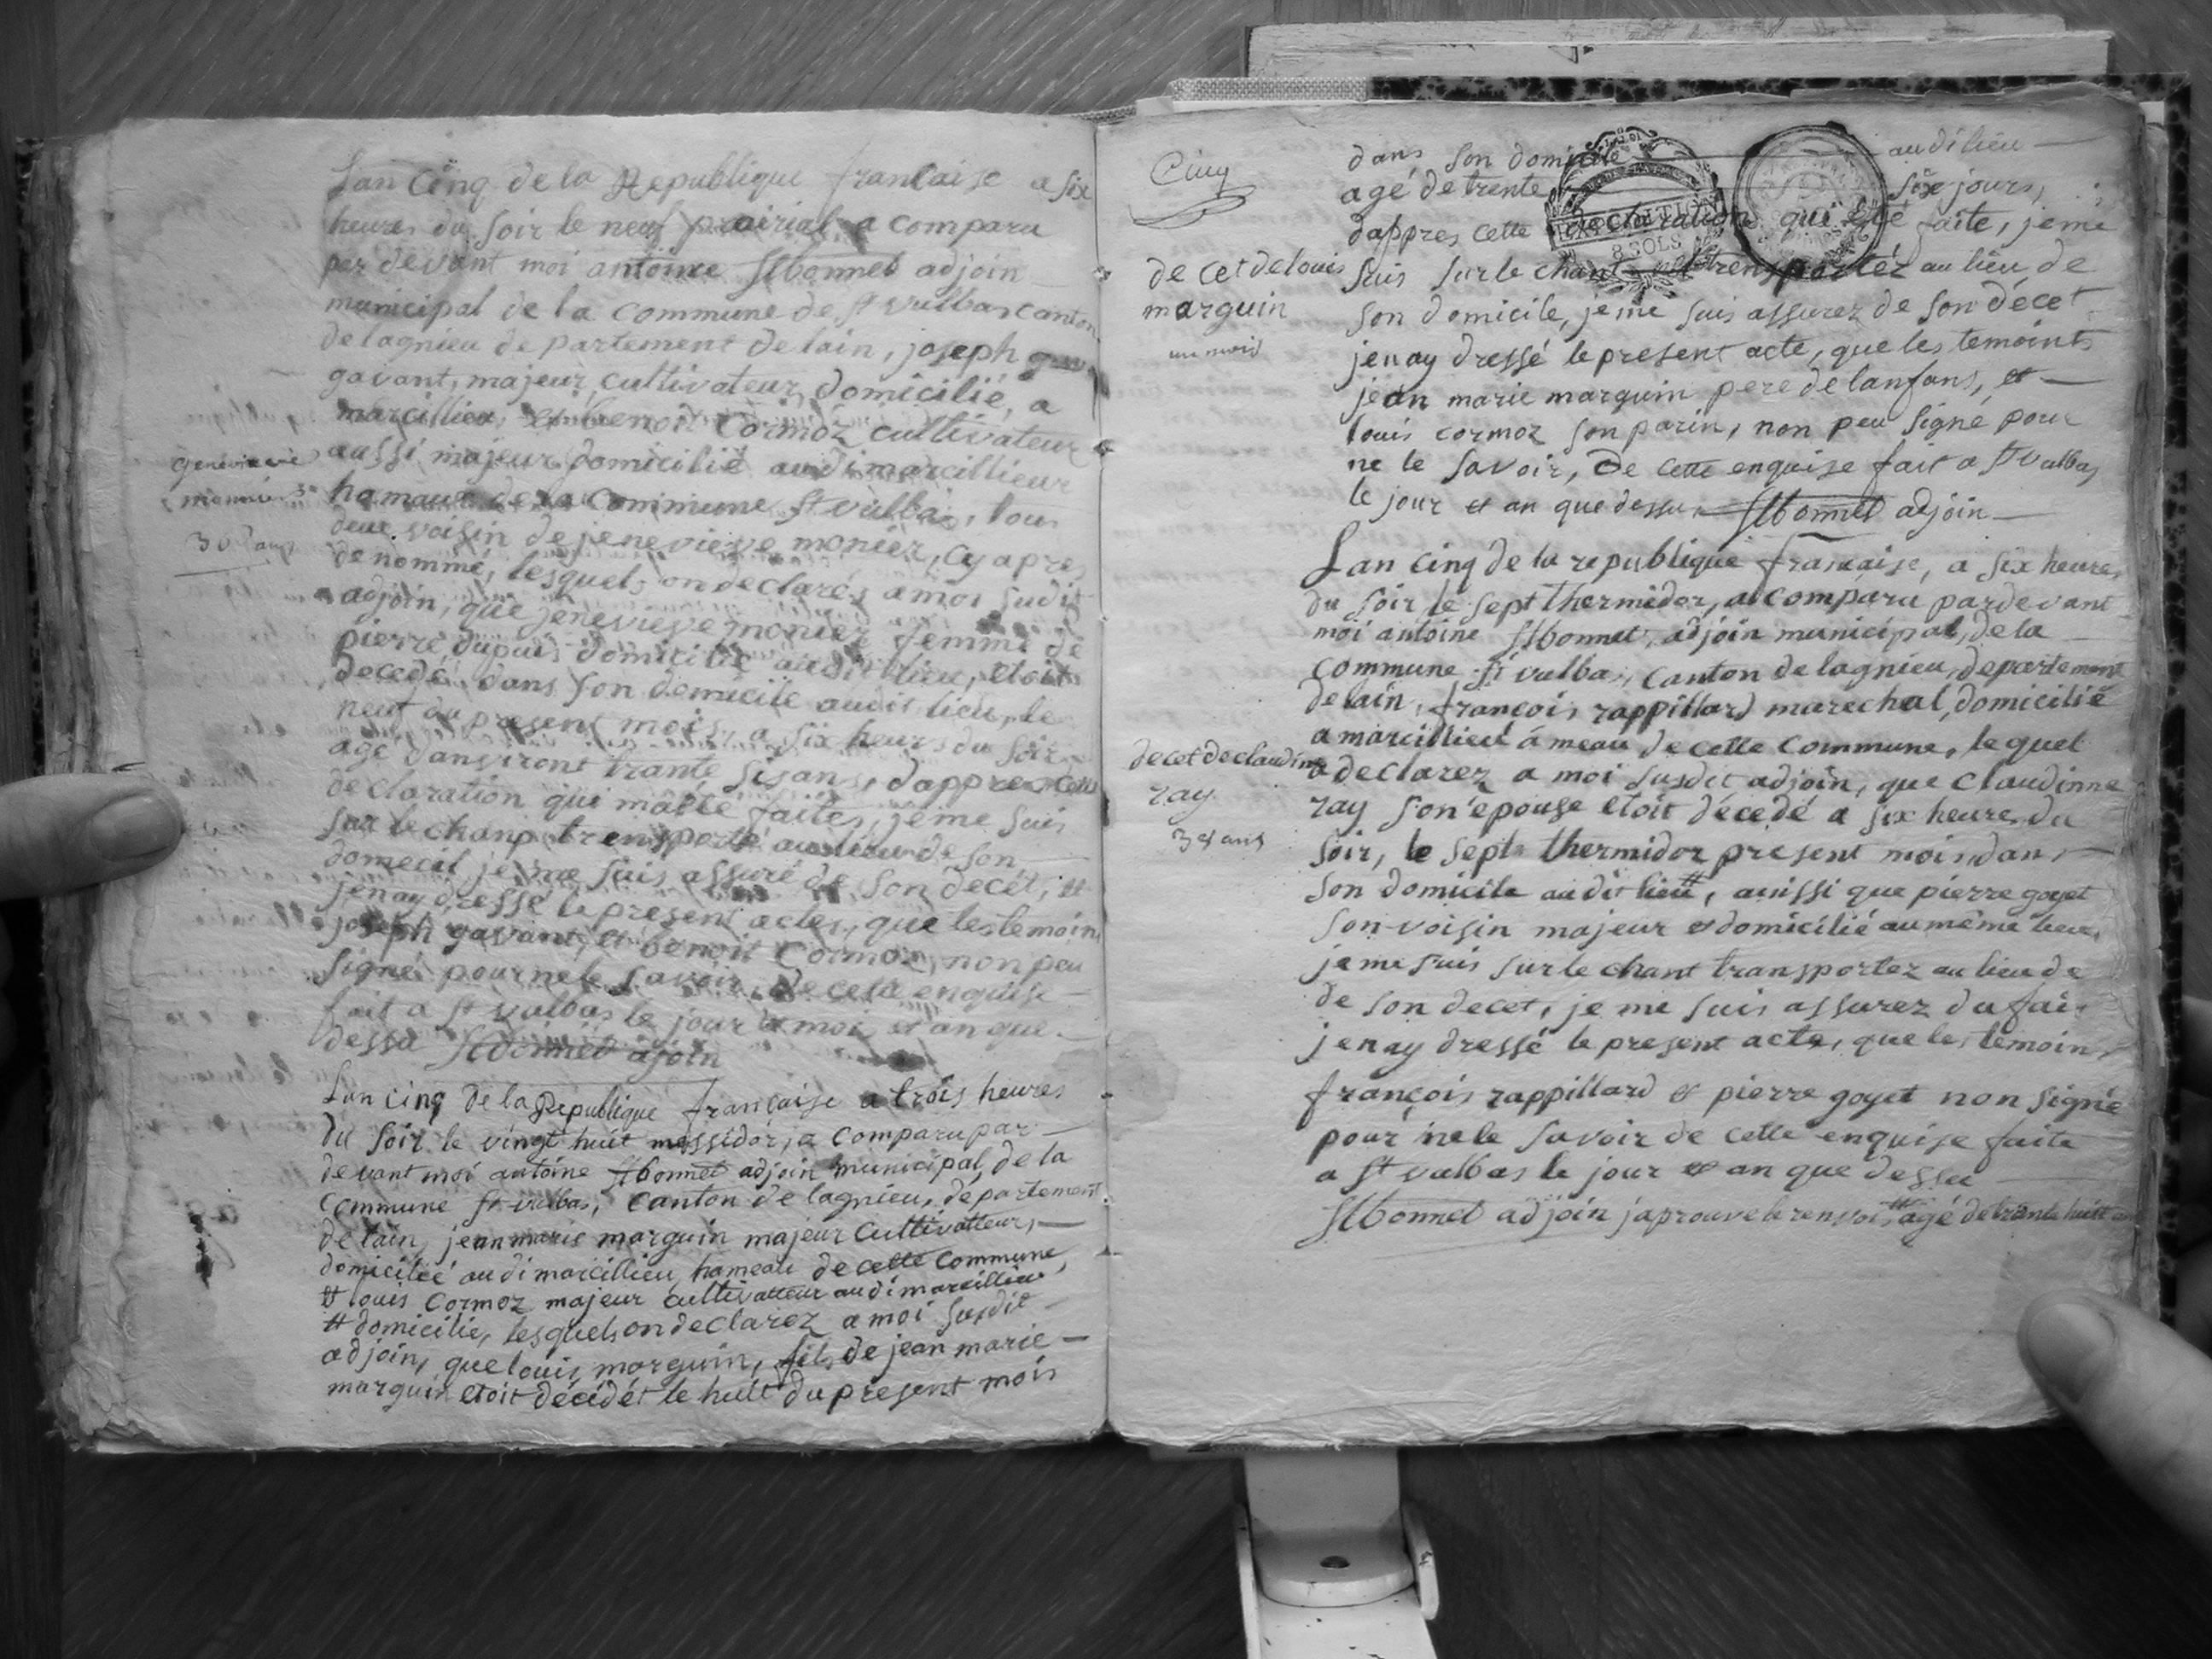 Lan Cinq de la Republique francaise a six
heures du soir le neuf prairial a comparu
par devant moi antoine Stbonnet adjoin
municipal de la commune de St vulbas canton
de lagnieu departement de lain, joseph
gavant, majeur cultivateur, domicilié, a
marcillieu, et benoit Cormoz cultivateur
aussi majeur domicilié audi marcillieux
hamaux de la commune St vulbas, tous
deux voisin de jenevieve monier, cy apres
denommé, lesquels on declarés a moi sudit
adjoin, que jenevieve monier femme de
pierre dupuis domicilié audit lieu, etoit
decedé dans son domicile audit lieu, le
neuf du present mois, a six heurs du soir
agé danviront trante sis ans, dappres cette
declaration qui mâeté faites, jeme suis
sur le champ trensporté au lieu de son
domecil, je me suis assuré de son decét, et
jenay dressé le present actes, que les temoins
joseph gavant, et benoit Cormoz, non peu
signé pour ne le savoir, de cette enquise
fait a St vulbas le jour le moi et an que
dessu Stbonnet ajoin
genevieve
monnier
30 ans
Lan cinq de la Republique francaise a trois heures
du soir le vingt huit messidor, a comparu par
devant moi antoine Stbonnet adjoin municipal, de la
Commune St vulbas, canton de lagnieu, departement
de lain, jean marie marguin majeur Cultivatteur,
domicilié au di marcillieu, hameau de cette commune,
et louis cormoz majeur cultivatteur au di marcillieu
domicilie, lesquels on declarez a moi susdit
adjoin, que louis marguin, fils de jean marie
marguin etoit décédét le huit du present mois
Cinq
dans son domicile audi lieu
agé de trente six jours,
dappres cette declaration que été faite, jeme
suis sur le chant trensportéz au lieu de
son domicile, je me suis assurez de son décet
jenay dressé le present acte, que les temoints
jean marie marguin pere de lanfans, et
louis cormoz son parin, non peu signé pour
ne le savoir, De cette enquise fait a St vulbas
le jour et an que dessu Stbonnet adjoin
EXPEDITION
8 SOLS
de cet de louis
marguin
un mois
Lan cinq de la republique francaise, a six heure
du soir le sept thermidor, a comparu pardevant
moi antoine Stbonnet, adjoin municipal, de la
commune St vulbas, canton de lagnieu, departement
de lain, françois rappillard marechal, domicilié
a marcillieu ámeau de cette commune, le quel
a declarez a moi susdit adjoin, que claudinne
ray son épouse etoit décedé a six heure du
soir, le sept thermidor present mois dan
son domicile au dit lieu #, aussi que pierre goyet
son voisin majeur et domicilié au même lieu,
je me suis sur le chant transportez au lieu de
de son decet, je me suis assurez du fai
jenay dressé le present acte, que les temoin
françois rappillard et pierre goyet non signé
pour ne le savoir de cette enquise faite
a St vulbas le jour et an que dessu
Stbonnet adjoin japrouve le renvoi, # agé de trante huit an
decet de claudine
ray
38 ans